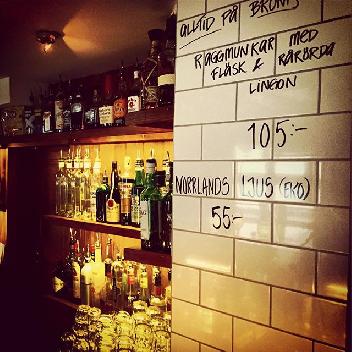 ALLTID PÅ BRUNS
RAGGMUNKAR MED
FLÄSK & RÅRÖRDA
LINGON
105:-
NORRLANDS LJUS (EKO)
55:-